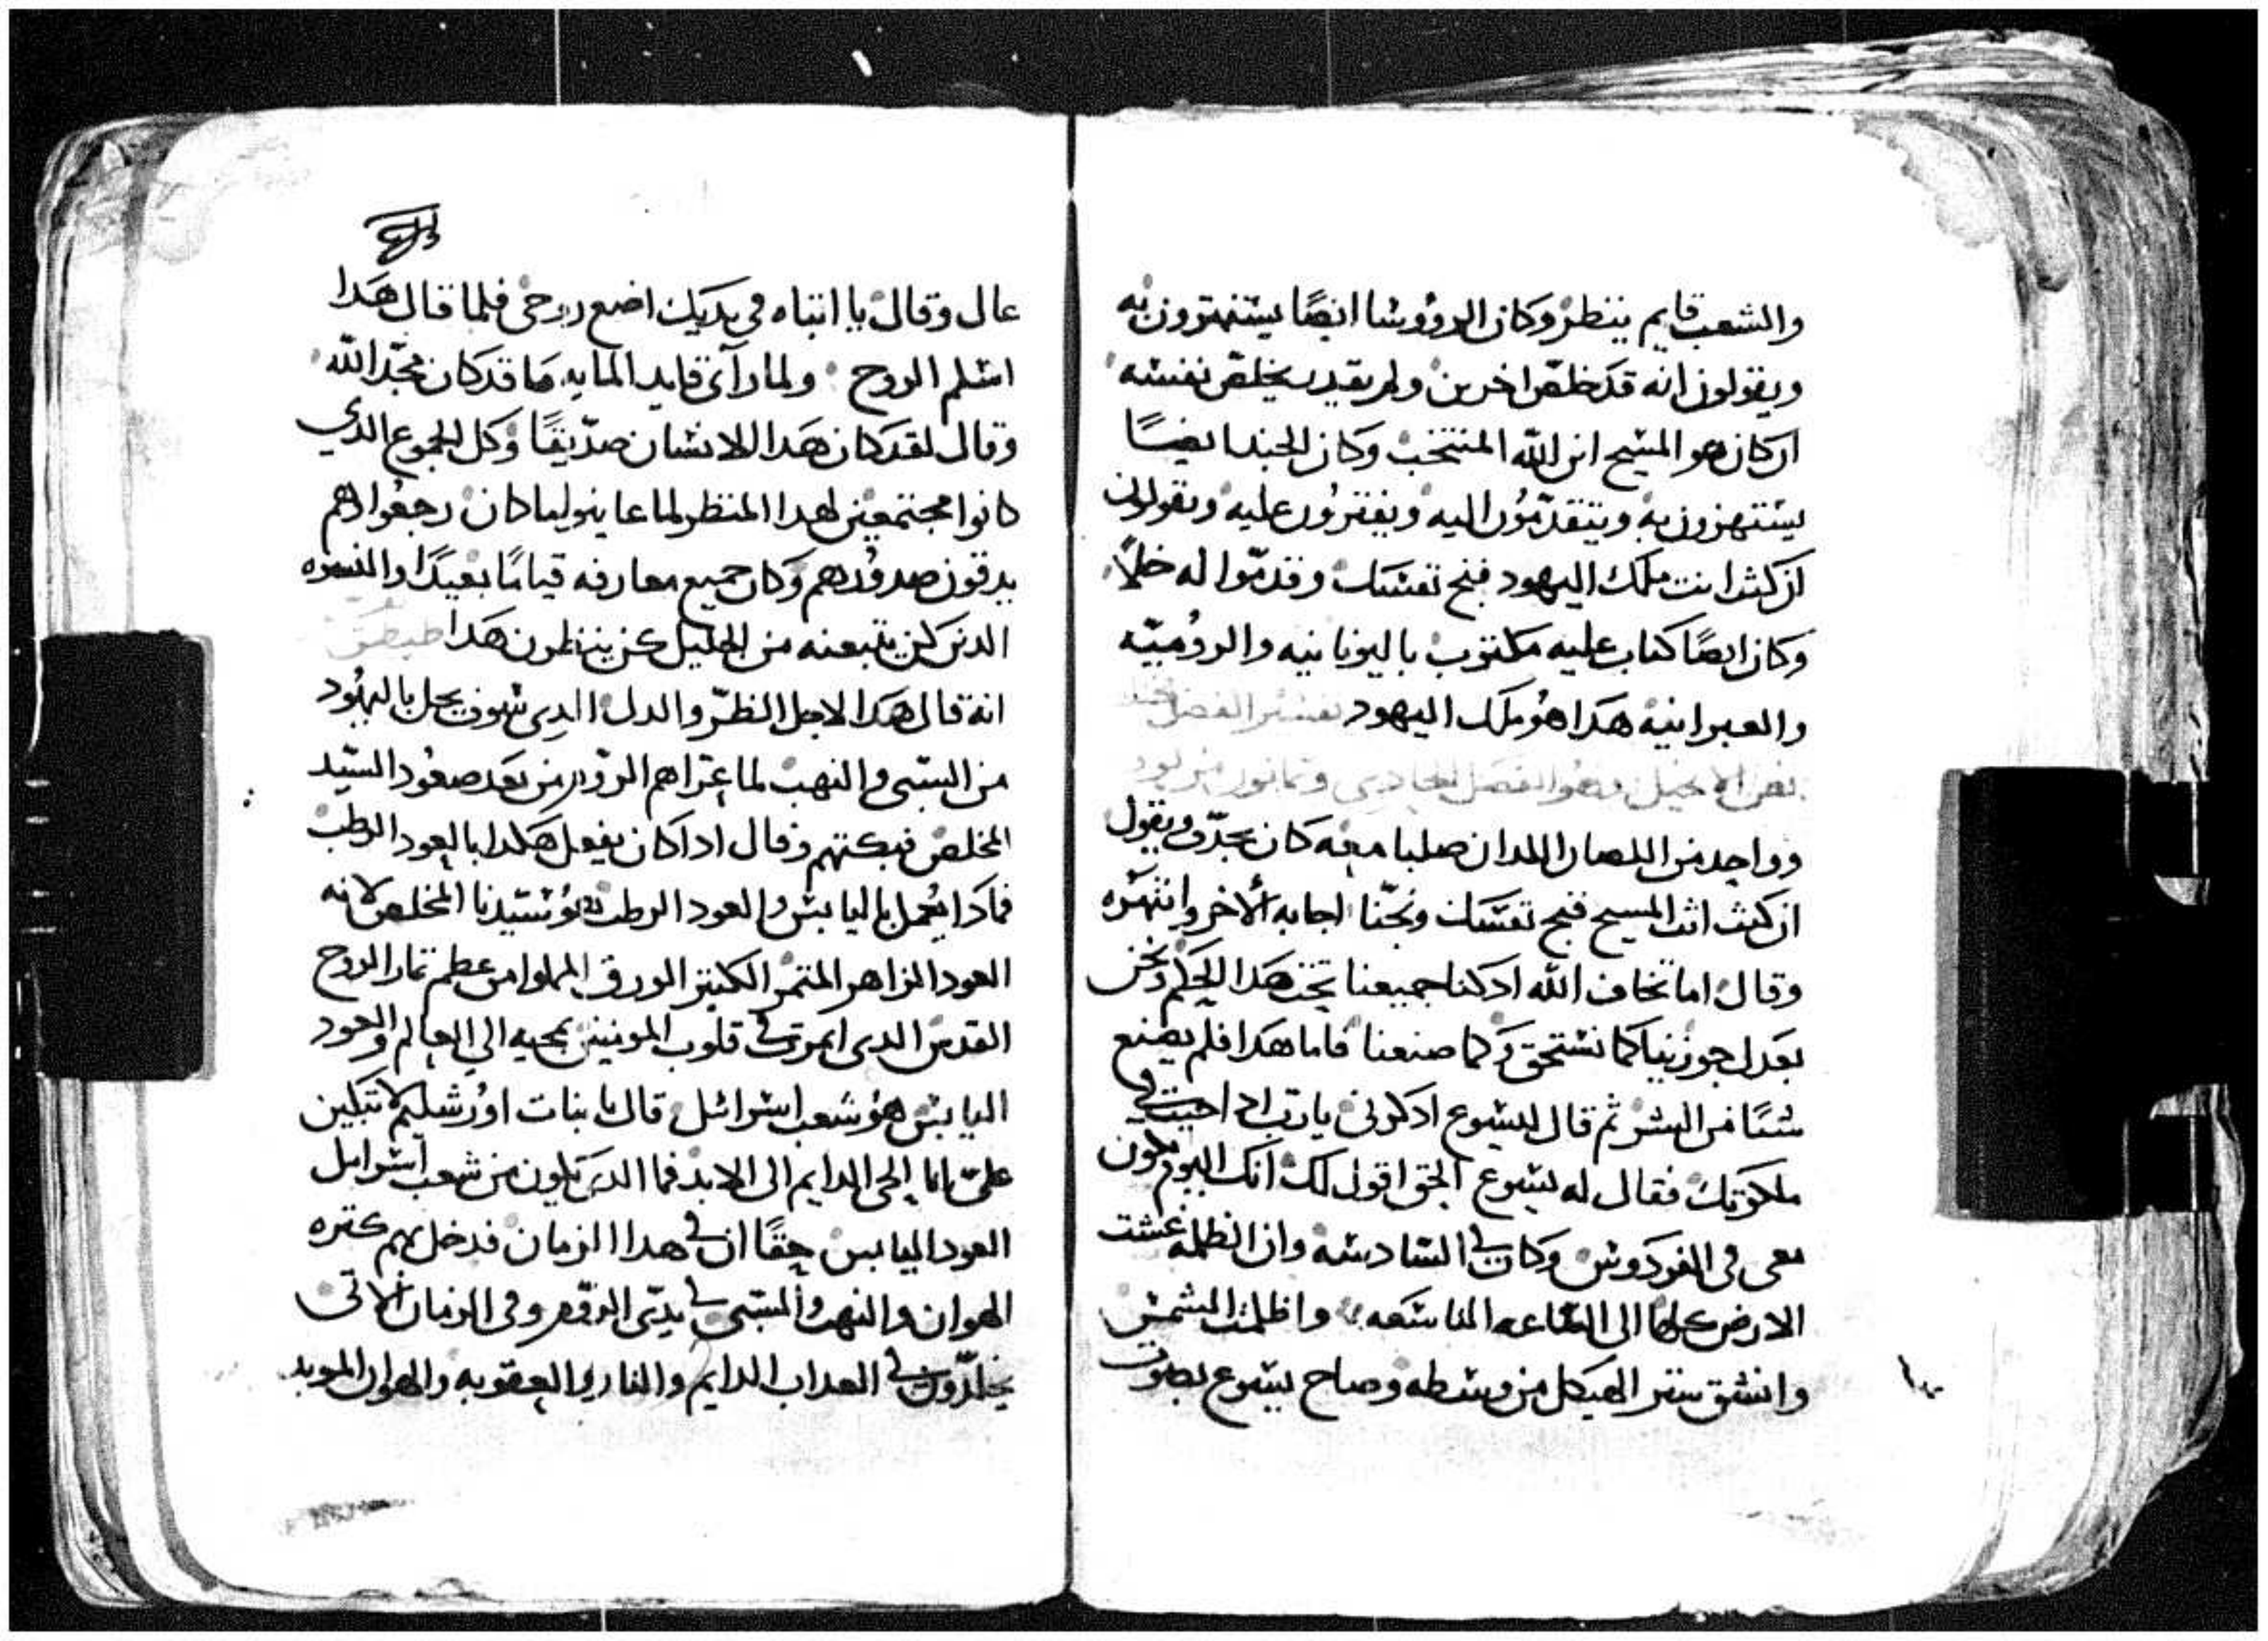 والشعب قايم ينتظر وكان الرووسا ايضًا يستهزون به
ويقولون انه قد خلص اخرين ولم يقدر يخلص نفسه
ان كان هو المسيح ابن الله المنتخب وكان الجند ايضًا
يستهزون به ويتقدمون اليه ويفترون عليه ويقولون
ان كنت انت ملك اليهود فنج نفسك وقدموا له خلًا
وكان ايضًا كتاب عليه مكتوب باليونانيه والروميه
والعبرانيه هدا هو ملك اليهود تفسير الفصل
نص الانجيل وهو الفصل الحادي وتمانون من لوقا
وواحد من اللصان اللدان صلبا معه كان يجدف ويقول
ان كنت انت المسيح فنج نفسك ونجنا اجابه الاخر وانتهره
وقال اما تخاف الله اد كنا جميعنا تحت هدا الحكم ونحن
بعدل جوزينا كما نستحق وكما صنعنا فاما هدا فلم يصنع
شيًا من الشر ثم قال ليسوع ادكرني يا رب ادا جيت في
ملكوتك فقال له يسوع الحق اقول لك انك اليوم تكون
معي في الفردوس وكان في السادسه وان الظلمه غشت
الارض كلها الى الساعه التاسعه واظلمت الشمس
وانشق ستر الهيكل من وسطه وصاح يسوع بصوت
عال وقال يا ابتاه في يديك اضع روحي فلما قال هدا
اسلم الروح ولما راى قايد المايه ما قد كان مجد الله
وقال لقد كان هدا الانسان صديقًا وكل الجموع الدي
كانوا مجتمعين لهدا المنظر لما عاينوا ما كان رجعوا وهم
يدقون صدورهم وكان جميع معارفه قيامًا بعيدًا والنسوه
الدين كن يتبعنه من الجليل كن ينظرون هدا
انه قال هدا لاجل الظر والدل الدي سوف يحل باليهود
من السبي والنهب لما اعتراهم الروم من بعد صعود السيد
المخلص فبكتهم وقال ادا كان يفعل هكدا بالعود الرطب
فمادا يعمل باليابس والعود الرطب هو سيدنا المخلص لانه
العود الزاهر المتمر الكتير الورق المملوا من عظم تمار الروح
القدس الدي اتمرت في قلوب المومنين بمجيه الي العالم والعود
اليابس هو شعب اسرائيل قال يا بنات اورشليم لا تبكين
علي انا الحي الدايم الى الابد فما الدي تكون من شعب اسرايل
العود اليابس حقًا ان في هدا الزمان فدخل بهم كتره
الهوان والنهب والسبي في يدي الروم وفي الزمان الاتي
يخلدون في العداب الدايم والنار والعقوبه والهوان الموبد